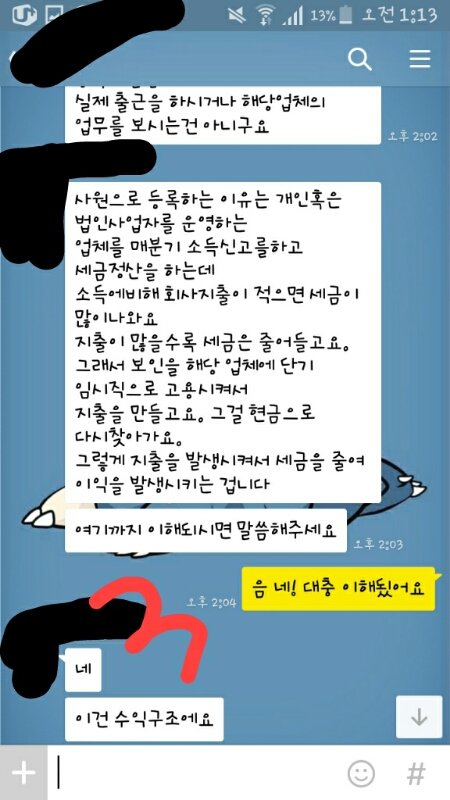 13% 오전 1:13
실제 출근을 하시거나 해당업체의
업무를 보시는건 아니구요
오후 2:02
사원으로 등록하는 이유는 개인혹은
법인사업자를 운영하는
업체를 매분기 소득신고를하고
세금정산을 하는데
소득에비해 회사지출이 적으면 세금이
많이나와요
지출이 많을수록 세금은 줄어들고요.
그래서 보인을 해당 업체에 단기
임시직으로 고용시켜서
지출을 만들고요. 그걸 현금으로
다시찾아가요.
그렇게 지출을 발생시켜서 세금을 줄여
이익을 발생시키는 겁니다
여기까지 이해되시면 말씀해주세요
오후 2:03
음 네! 대충 이해됬어요
오후 2:04
3
네
이건 수익구조에요
#